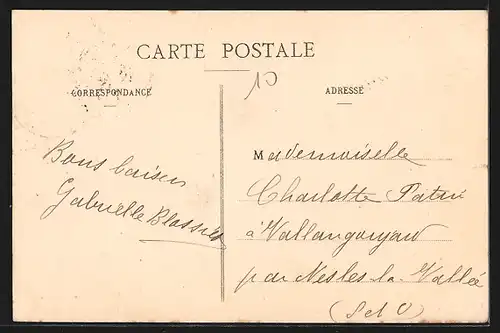 CARTE POSTALE
10
CORRESPONDANCE
ADRESSE
Bons baisers
Gabrielle
Mademoiselle
Charlotte
à Vallangoujard
par Nesles-la-Vallée
(S et O)